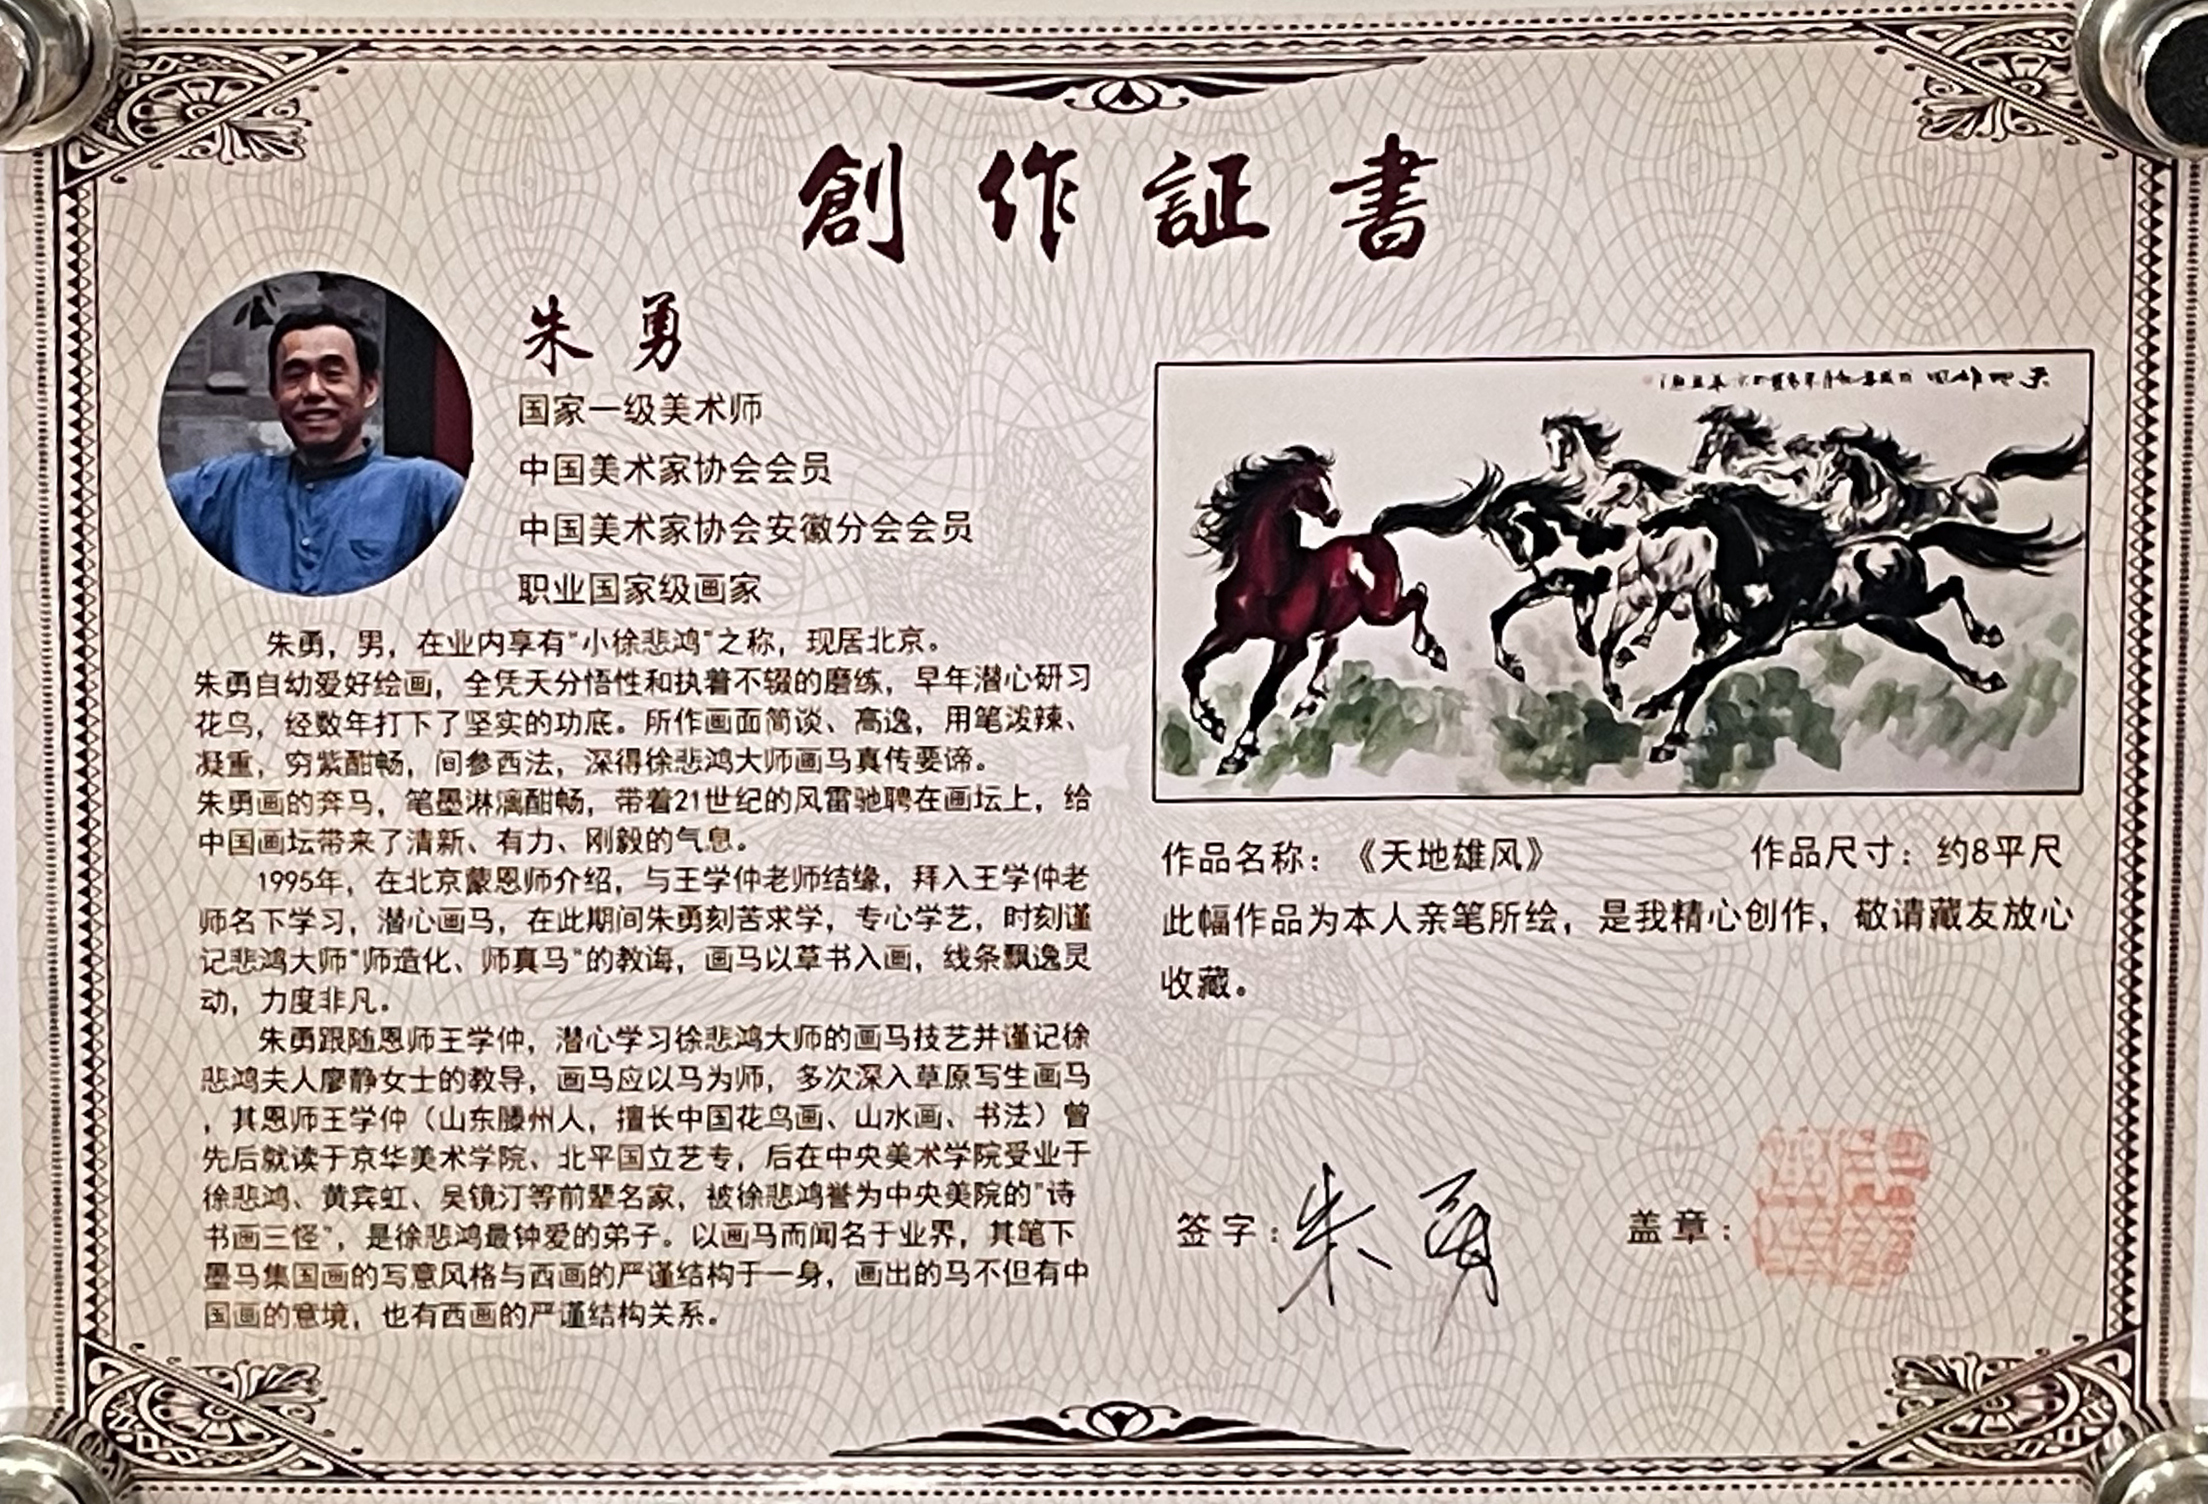 創作証書
朱勇
国家一级美术师
中国美术家协会会员
中国美术家协会安徽分会会员
职业国家级画家
朱勇，男，在业内享有"小徐悲鸿"之称，现居北京。
朱勇自幼爱好绘画，全凭天分悟性和执着不辍的磨练，早年潜心研习
花鸟，经数年打下了坚实的功底。所作画面简谈、高逸，用笔泼辣、
凝重，穷紫酣畅，间参西法，深得徐悲鸿大师画马真传要谛。
朱勇画的奔马，笔墨淋漓酣畅，带着21世纪的风雷驰聘在画坛上，给
中国画坛带来了清新、有力、刚毅的气息。
1995年，在北京蒙恩师介绍，与王学仲老师结缘，拜入王学仲老
师名下学习，潜心画马，在此期间朱勇刻苦求学，专心学艺，时刻谨
记悲鸿大师"师造化、师真马"的教诲，画马以草书入画，线条飘逸灵
动，力度非凡。
朱勇跟随恩师王学仲，潜心学习徐悲鸿大师的画马技艺并谨记徐
悲鸿夫人廖静女士的教导，画马应以马为师，多次深入草原写生画马
，其恩师王学仲（山东滕州人，擅长中国花鸟画、山水画、书法）曾
先后就读于京华美术学院、北平国立艺专，后在中央美术学院受业于
徐悲鸿、黄宾虹、吴镜汀等前辈名家，被徐悲鸿誉为中央美院的"诗
书画三怪"，是徐悲鸿最钟爱的弟子。以画马而闻名于业界，其笔下
墨马集国画的写意风格与西画的严谨结构于一身，画出的马不但有中
国画的意境，也有西画的严谨结构关系。
作品名称：《天地雄风》 作品尺寸：约8平尺
此幅作品为本人亲笔所绘，是我精心创作，敬请藏友放心
收藏。
签字：朱勇 盖章：